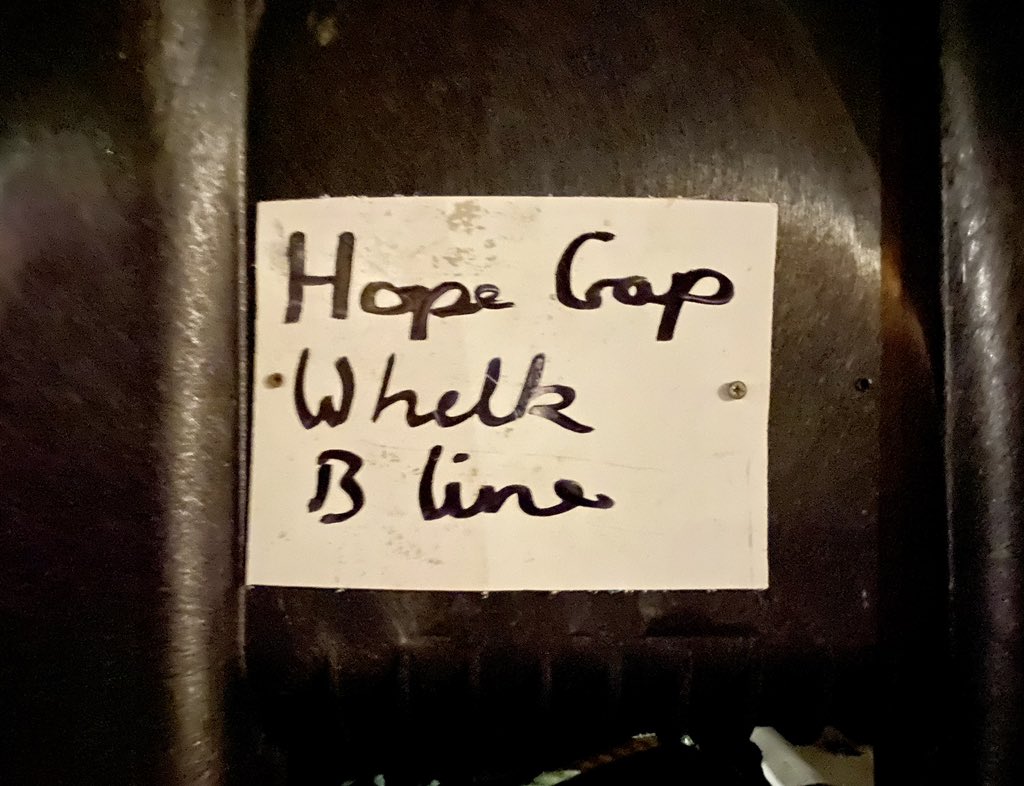 Hope Gap
Whelk
B line